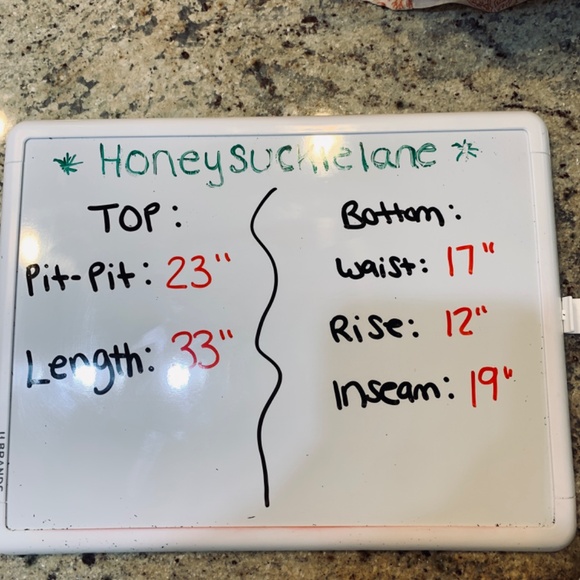 * Honeysucklelane *
TOP:
Pit-Pit: 23"
Length: 33"
Bottom:
Waist: 17"
Rise: 12"
Inseam: 19"